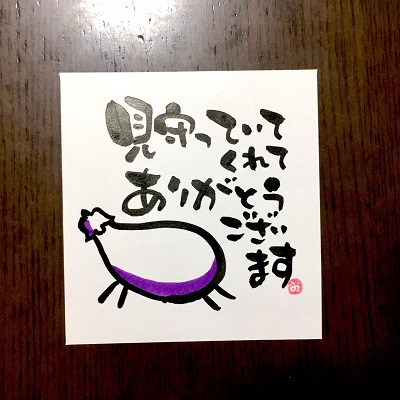 見守っていて
くれて
ありがとう
ござい
ます
み